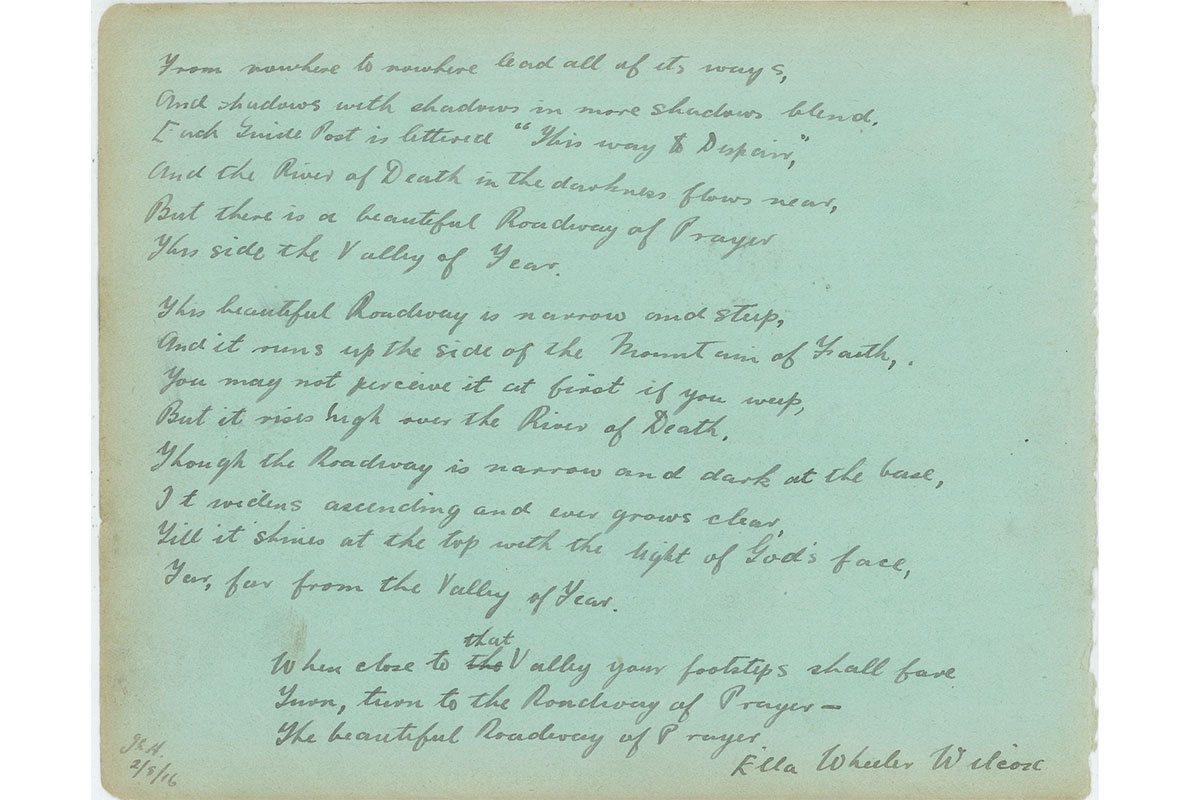 From nowhere to nowhere lead all of its ways,
And shadows with shadows in more shadows blend.
Each Guide Post is lettered "This way to Despair,"
And the River of Death in the darkness flows near,
But there is a beautiful Roadway of Prayer
This side the Valley of Fear.
This beautiful Roadway is narrow and steep,
And it runs up the side of the Mountain of Faith,.
You may not perceive it at first if you weep,
But it rises high over the River of Death.
Though the Roadway is narrow and dark at the base,
It widens ascending and ever grows clear,
Till it shines at the top with the light of God's face,
Far, far from the Valley of Fear.
that
When close to the Valley your footsteps shall fare
Turn, turn to the Roadway of Prayer—
The beautiful Roadway of Prayer
Ella Wheeler Wilcox
2/5/16